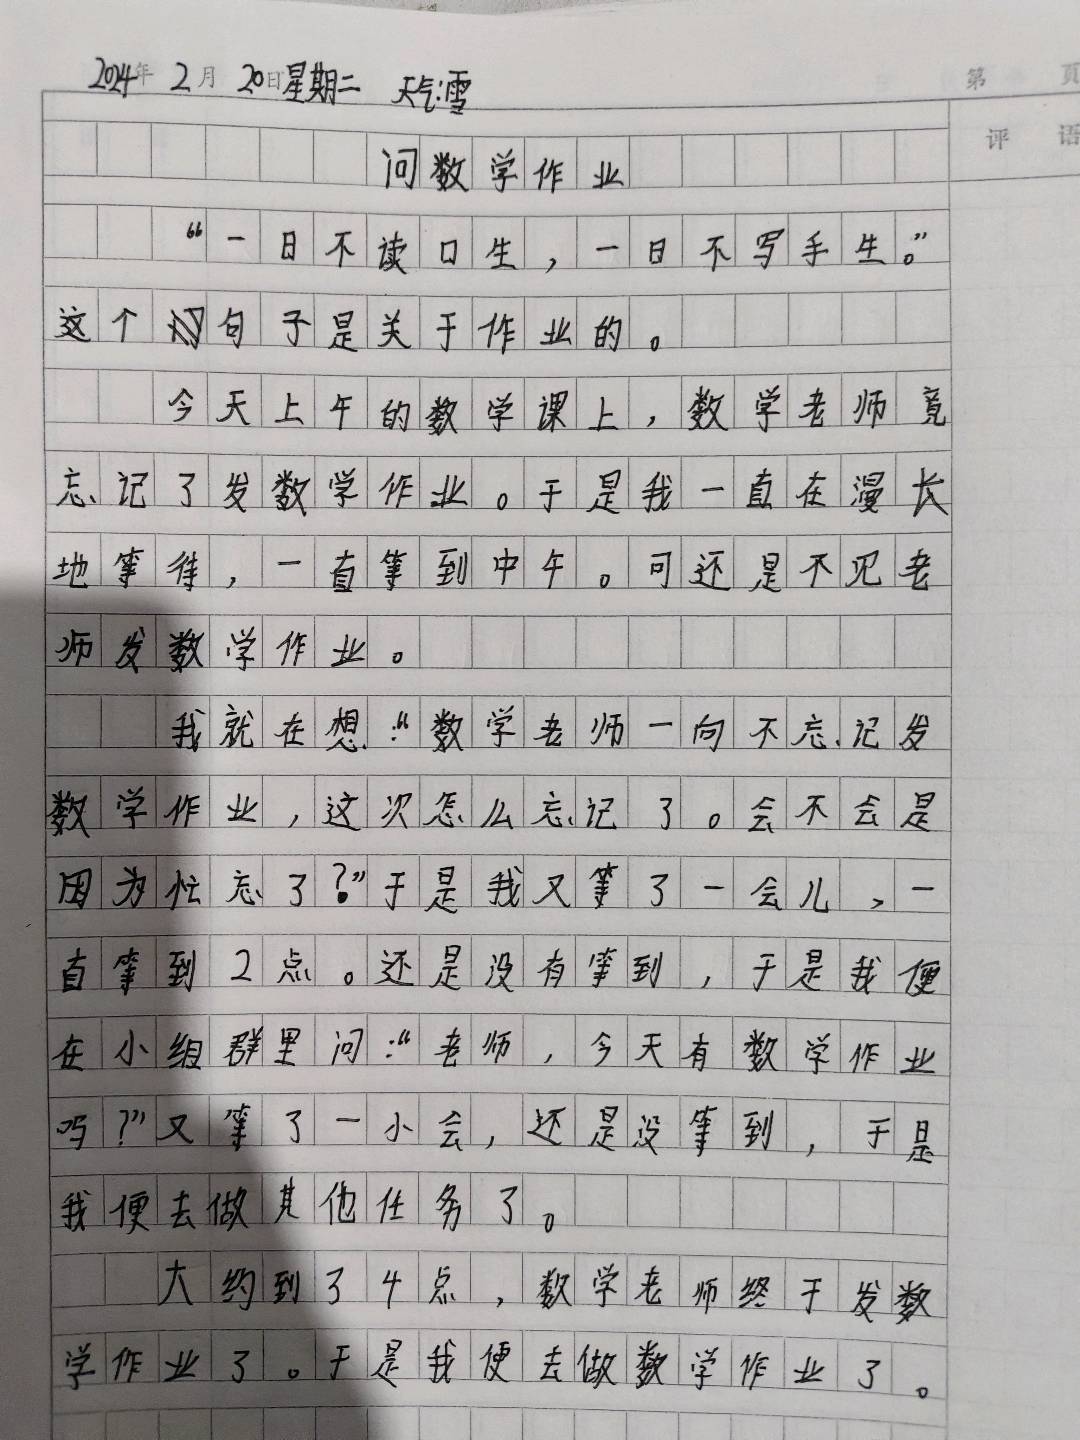 2024年 2月 20日星期二 天气:雪
第 页
评 语
问数学作业
“一日不读口生，一日不写手生。”
这个句子是关于作业的。
今天上午的数学课上，数学老师竟
忘记了发数学作业。于是我一直在漫长
地等待，一直等到中午。可还是不见老
师发数学作业。
我就在想:“数学老师一向不忘记发
数学作业，这次怎么忘记了。会不会是
因为忙忘了?”于是我又等了一会儿，一
直等到2点。还是没有等到，于是我便
在小组群里问:“老师，今天有数学作业
吗?”又等了一小会，还是没等到，于是
我便去做其他任务了。
大约到了4点，数学老师终于发数
学作业了。于是我便去做数学作业了。